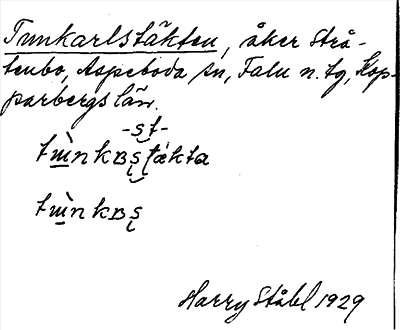 Tunkarlstäkten, åker Strå-
tenbo, Aspeboda sn, Falu n. tg, Kop-
parbergs län.
-s̨t̨-
tɯ̀nkʙs̨t̨ákta
tɯ̀nkʙs̨
Harry Ståhl 1929